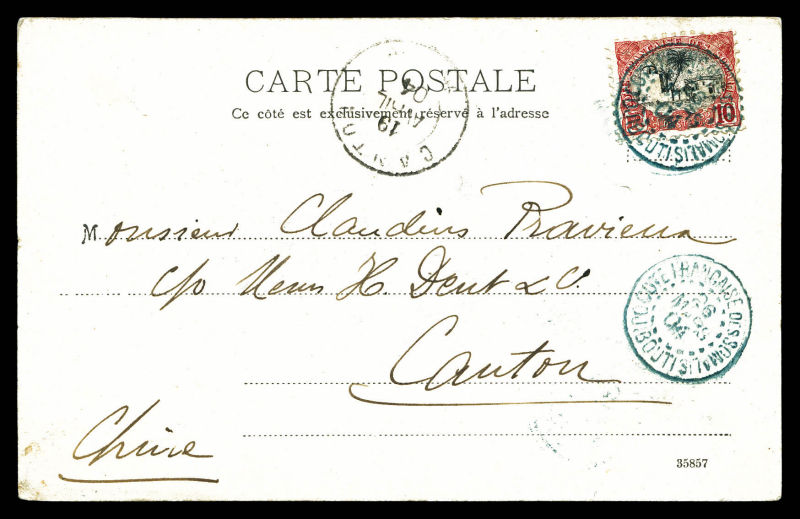 CARTE POSTALE
Ce côté est exclusivement réservé à l'adresse
CANTON
19
AVRIL
04
10
Monsieur Claudius Pravieux
c/o Messrs H. Dent & Co.
CÔTE FRANÇAISE DES SOMALIS
26
MARS
04
DJIBOUTI
Canton
Chine
35857